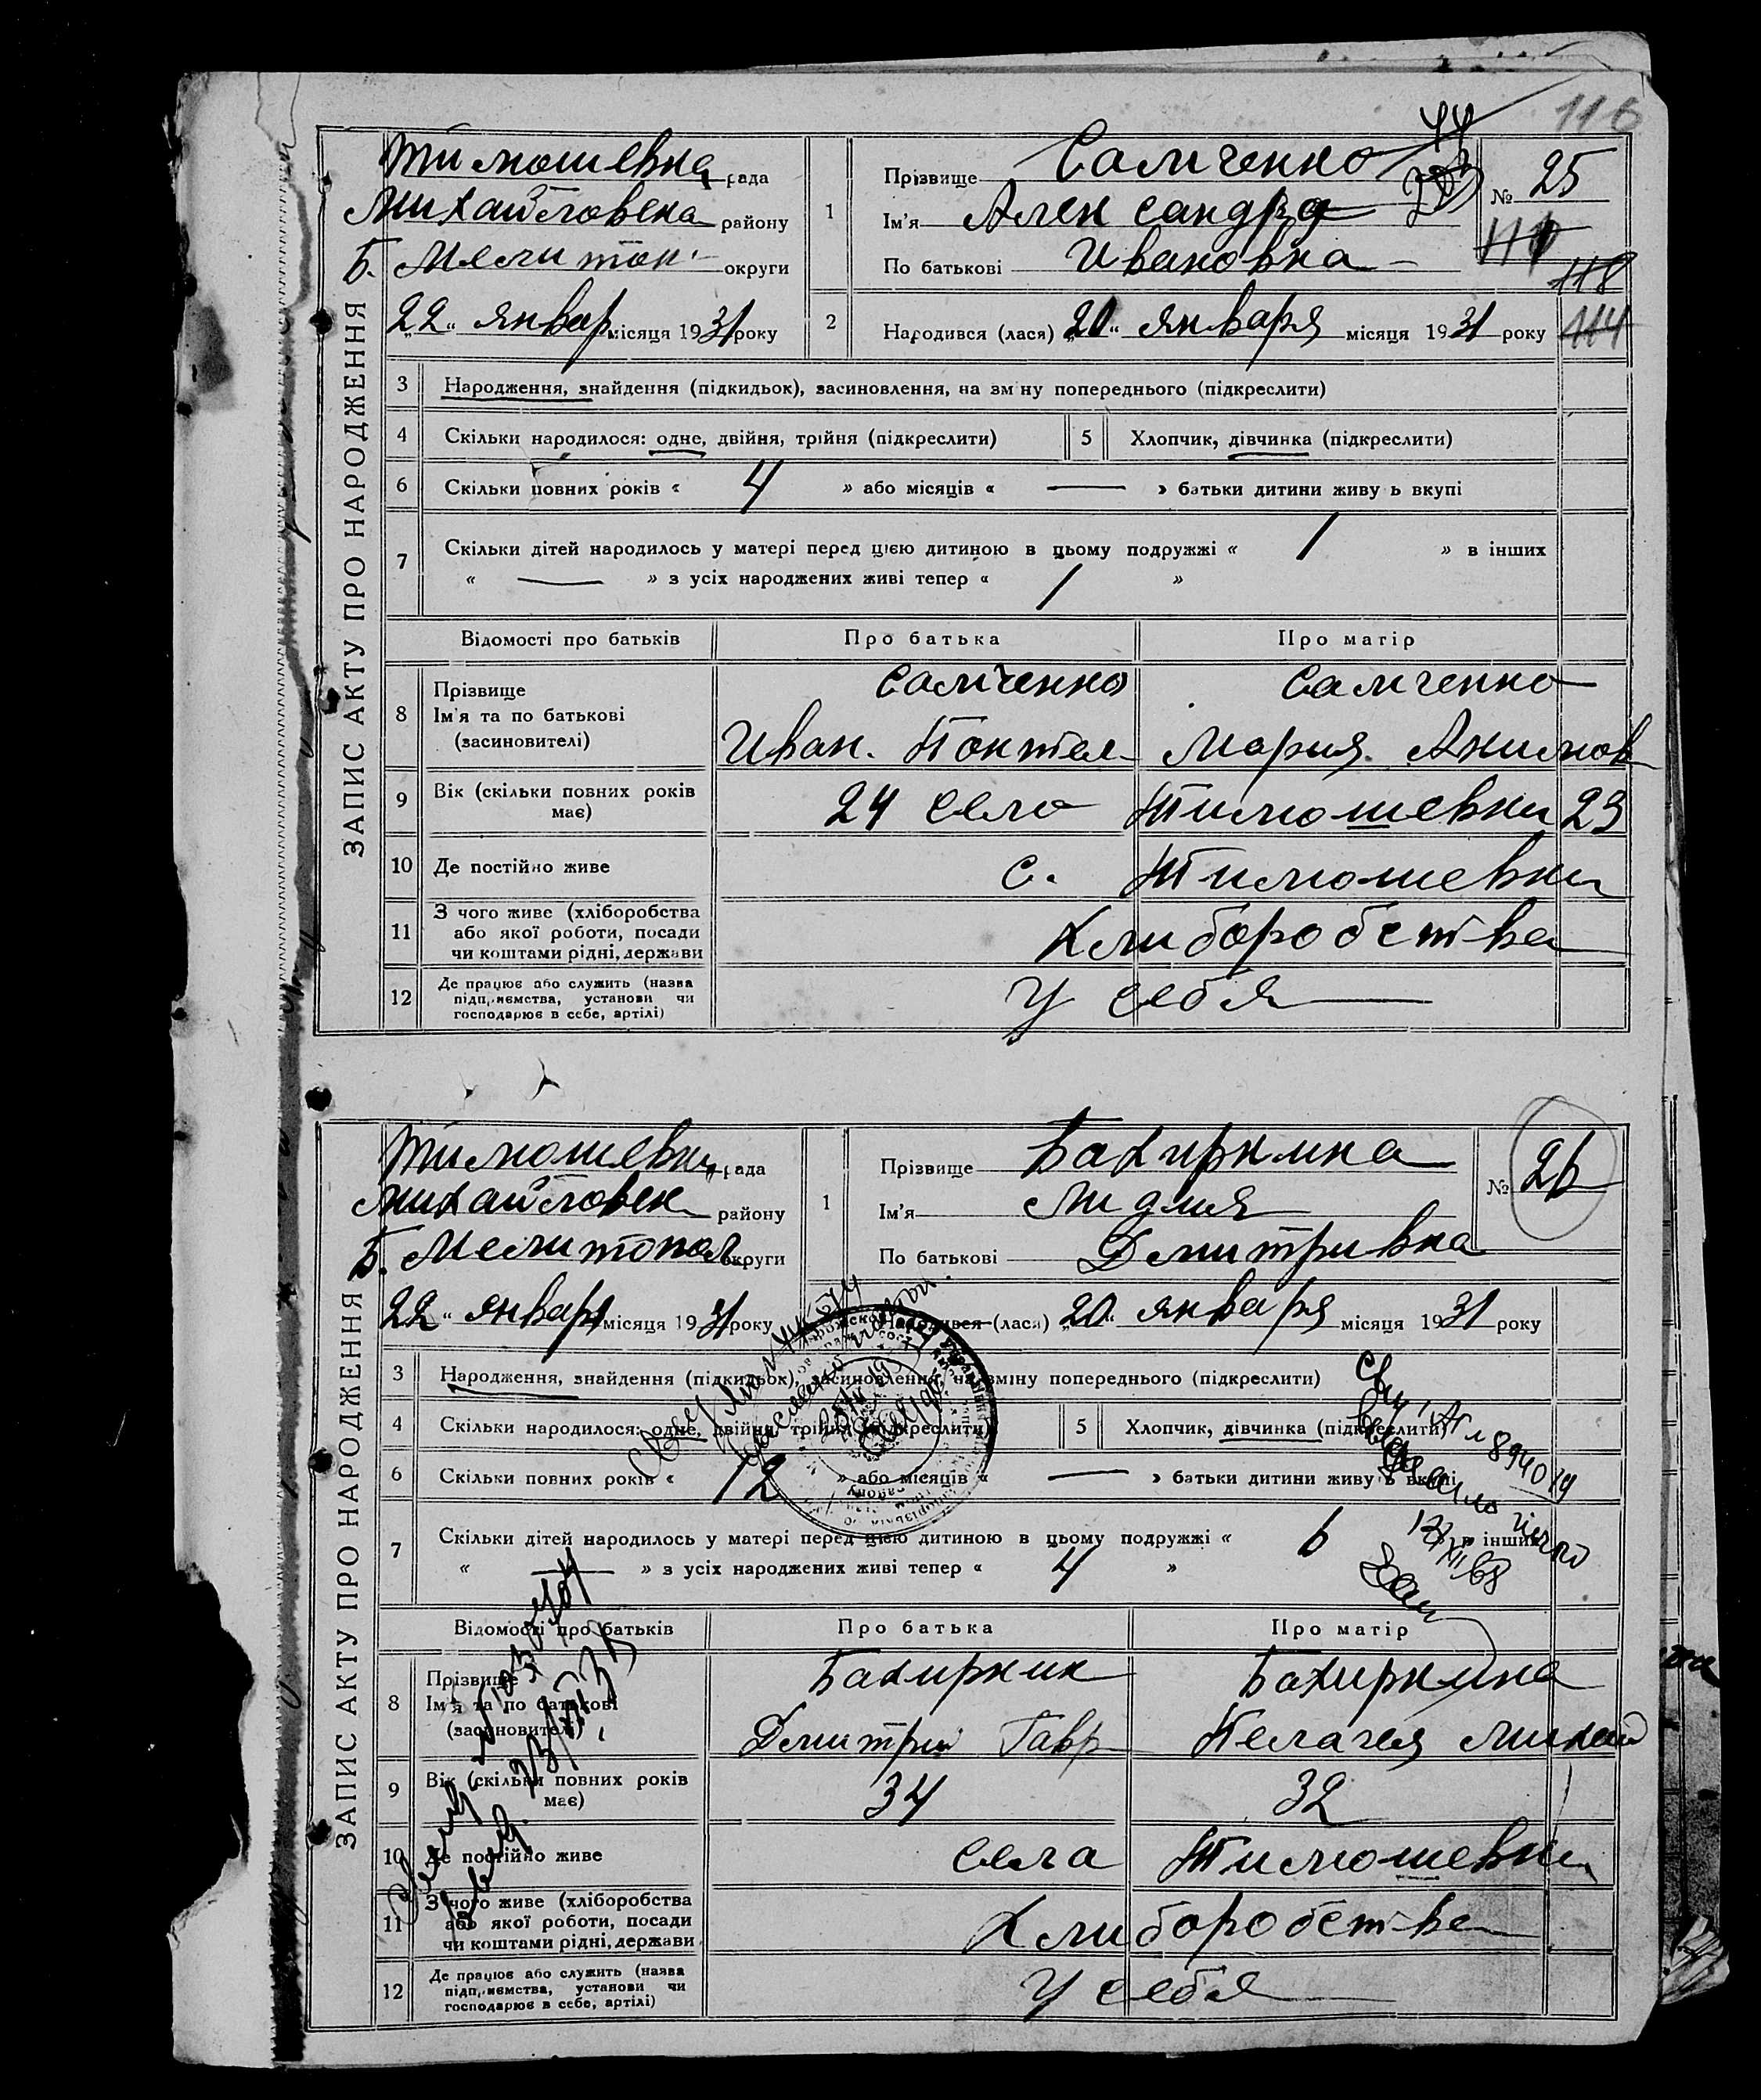 116
ЗАПИС АКТУ ПРО НАРОДЖЕННЯ
Тимошевка рада
Михайловска району
Б. Мелитоп. округи
„22“ январ місяця 1931 року
1 Прізвище Самченко
Ім'я Александра
По батькові Ивановна
№ 25
118
114
2 Народився (лася) „20“ января місяця 1931 року
3 Народження, знайдення (підкидьок), засиновлення, на зміну попереднього (підкреслити)
4 Скільки народилося: одне, двійня, трійня (підкреслити) 5 Хлопчик, дівчинка (підкреслити)
6 Скільки повних років « 4 » або місяців « — » батьки дитини живуть вкупі
7 Скільки дітей народилось у матері перед цією дитиною в цьому подружжі « 1 » в інших
« — » з усіх народжених живі тепер « 1 »
Відомості про батьків Про батька Про матір
8 Прізвище Самченко Самченко
Ім'я та по батькові
(засиновителі) Иван. Понтел Мария Акимов
9 Вік (скільки повних років має) 24 село Тимошевки 23
10 Де постійно живе с. Тимошевки
11 З чого живе (хліборобства
або якої роботи, посади
чи коштами рідні, держави Хлиборобства
12 Де працює або служить (назва
підприємства, установи чи
господарює в себе, артілі) У себя
ЗАПИС АКТУ ПРО НАРОДЖЕННЯ
Тимошевки рада
Михайловск району
Б. Мелитопол округи
„22“ январ місяця 1931 року
1 Прізвище Бахиркина
Ім'я Лидия
По батькові Дмитривна
№ 26
Народився (лася) „20“ января місяця 1931 року
3 Народження, знайдення (підкидьок), засиновлення, на зміну попереднього (підкреслити)
4 Скільки народилося: одне, двійня, трійня (підкреслити) 5 Хлопчик, дівчинка (підкреслити)
6 Скільки повних років « 12 » або місяців « — » батьки дитини живуть вкупі
7 Скільки дітей народилось у матері перед цією дитиною в цьому подружжі « 6 » в інших
« — » з усіх народжених живі тепер « 4 »
Відомості про батьків Про батька Про матір
8 Прізвище Бахиркин Бахиркина
Ім'я та по батькові
(засиновителі) Дмитрий Гавр Пелагея Михай
9 Вік (скільки повних років має) 34 32
10 Де постійно живе села Тимошевки
11 З чого живе (хліборобства
або якої роботи, посади
чи коштами рідні, держави Хлиборобства
12 Де працює або служить (назва
підприємства, установи чи
господарює в себе, артілі) У себя